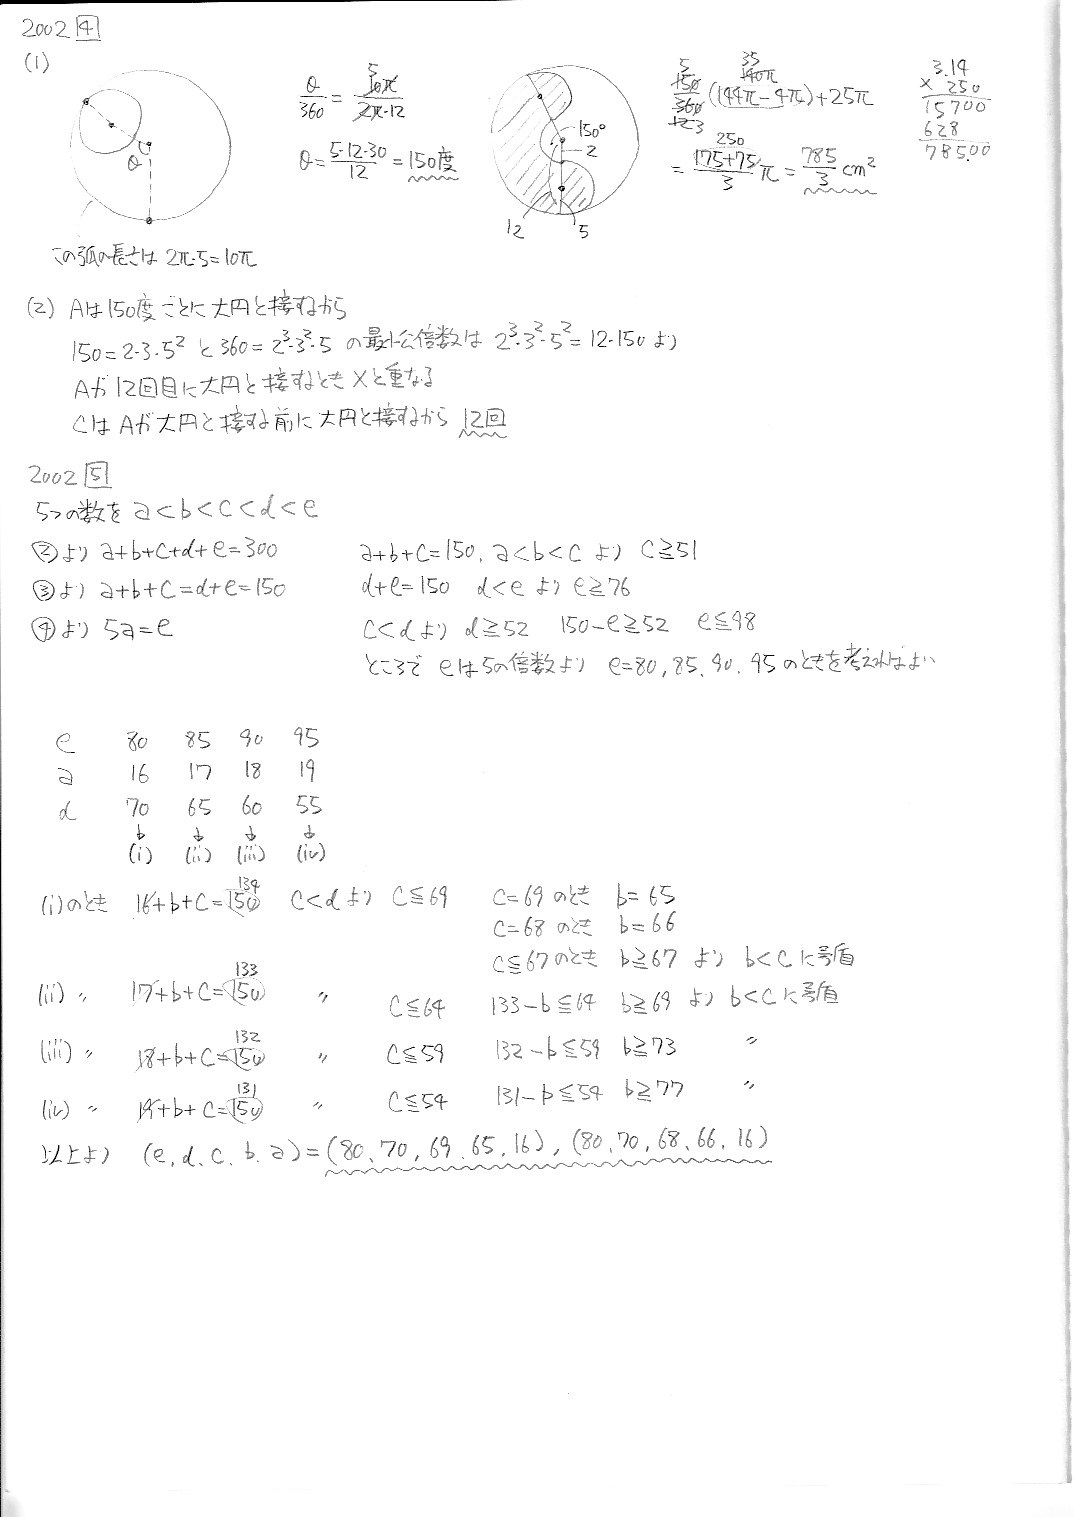 2002 4
(1)
θ/360 = 5 10π/2π・12
θ = 5・12・30/12 = 150度
θ
この弧の長さは 2π・5=10π
150°
2
12
5
5 150/360 12 3 (144π-4π) 35 140π + 25π
= 250 175+75/3 π = 785/3 cm²
3.14
× 250
15700
628
785.00
(2) Aは150度ごとに大円と接するから
150=2・3・5² と 360=2³・3²・5 の最小公倍数は 2³・3²・5²=12・150より
Aが12回目に大円と接するときXと重なる
CはAが大円と接する前に大円と接するから 12回
2002 5
5つの数を a<b<c<d<e
②より a+b+c+d+e=300
a+b+c=150, a<b<c より c≧51
③より a+b+c=d+e=150
d+e=150 d<e より e≧76
④より 5a=e
c<dより d≧52 150-e≧52 e≦98
ところで eは5の倍数より e=80,85,90,95のときを考えればよい
e 80 85 90 95
a 16 17 18 19
d 70 65 60 55
↓ ↓ ↓ ↓
(i) (ii) (iii) (iv)
(i)のとき 16+b+c=150 134 c<dより c≦69 c=69のとき b=65
c=68のとき b=66
c≦67のとき b≧67 より b<cに矛盾
(ii) 〃 17+b+c=150 133 〃 c≦64 133-b≦64 b≧69 より b<cに矛盾
(iii) 〃 18+b+c=150 132 〃 c≦59 132-b≦59 b≧73 〃
(iv) 〃 19+b+c=150 131 〃 c≦54 131-b≦54 b≧77 〃
以上より (e,d,c,b,a)=(80,70,69,65,16),(80,70,68,66,16)